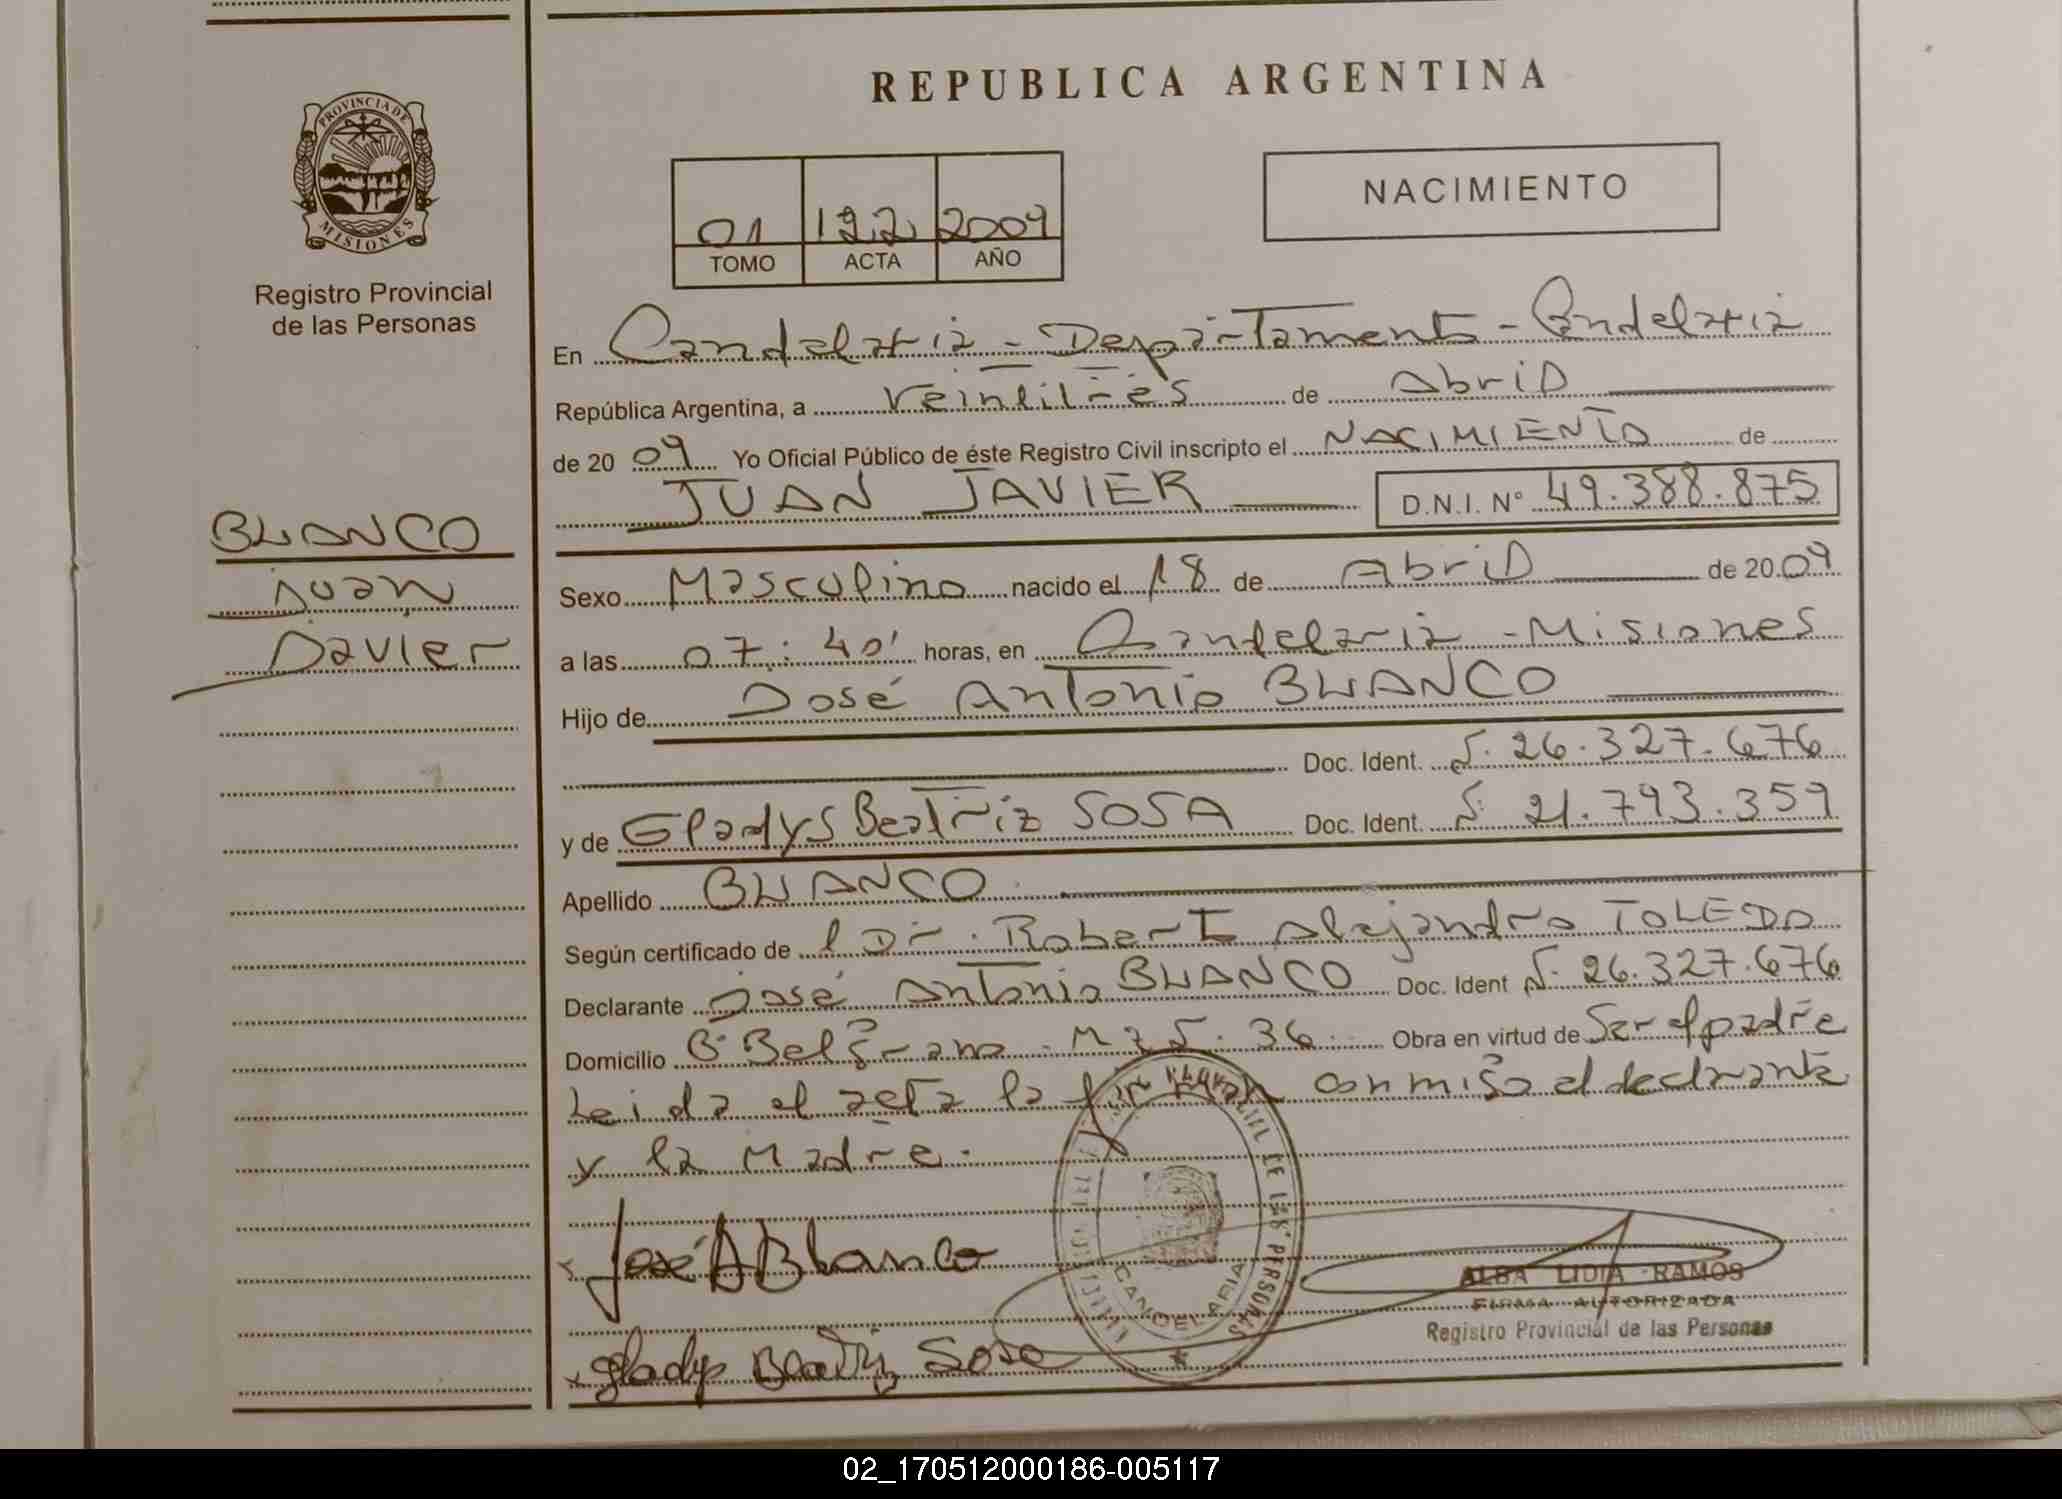 REPUBLICA ARGENTINA
PROVINCIA DE MISIONES
Registro Provincial
de las Personas
01 122 2009
TOMO ACTA AÑO
NACIMIENTO
BLANCO
Juan
Javier
En Candelaria - Departamento - Candelaria
República Argentina, a veintitrés de Abril
de 2009 Yo Oficial Público de éste Registro Civil inscripto el NACIMIENTO de
JUAN JAVIER D.N.I. N° 49.388.875
Sexo Masculino nacido el 18 de Abril de 2009
a las 07:40' horas, en Candelaria - Misiones
Hijo de José Antonio BLANCO
Doc. Ident. 26.327.676
y de Gladys Beatriz SOSA Doc. Ident. 21.793.359
Apellido BLANCO
Según certificado de l Dr. Roberto Alejandro TOLEDO
Declarante José Antonio BLANCO Doc. Ident 26.327.676
Domicilio B° Belgrano - Mz 5. 36 Obra en virtud de Ser el padre
Leida el acta la firman conmigo el declarante
y la Madre.
x José A Blanco
x gladys Beatriz Sosa
DE LAS PERSONAS
CANDELARIA
ALBA LIDIA RAMOS
FIRMA AUTORIZADA
Registro Provincial de las Personas
02_170512000186-005117